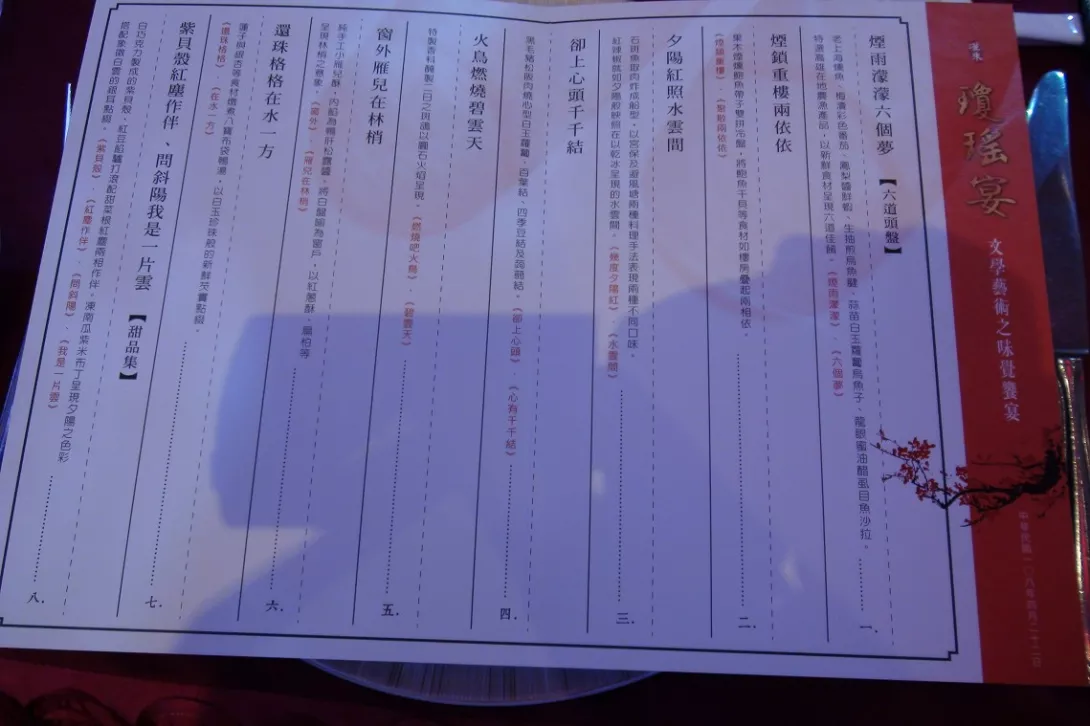 瓊瑤宴
文學藝術之味覺饗宴
中華民國一〇八年四月二十二日
煙雨濛濛六個夢 【六道頭盤】
老上海燻魚、梅漬彩色番茄、鳳梨醬鮮蝦、生抽煎烏魚腱、蒜苗白玉蘿蔔烏魚子、龍眼蜜油醋虱目魚沙拉。
特選高雄在地農漁產品，以新鮮食材呈現六道佳餚。《煙雨濛濛》、《六個夢》
一.
煙鎖重樓兩依依
果木煙燻鮑魚帶子雙拼冷盤，將鮑魚干貝等食材如樓房疊起兩相依。
《煙鎖重樓》、《兩相依依》
二.
夕陽紅照水雲間
石斑魚取肉炸成船型，以宮保及避風塘兩種料理手法表現兩種不同口味。
紅辣椒就如夕陽般映照在以乾冰呈現的水雲間。《幾度夕陽紅》、《水雲間》
三.
卻上心頭千千結
黑毛豬松阪肉燒心型白玉蘿蔔，百葉結、四季豆結及蒟蒻結。《卻上心頭》、《心有千千結》
四.
火鳥燃燒碧雲天
特製香料醃製二日之烤鴿以圓石火焰呈現。《燃燒吧火鳥》、《碧雲天》
五.
窗外雁兒在林梢
純手工小雁兒酥，內餡為鴨肝松露醬，將白盤喻為窗戶，以紅蔥酥、扁柏等
呈現林梢之意象。《窗外》、《雁兒在林梢》
六.
還珠格格在水一方
蓮子與銀杏等食材燉煮八寶布袋鴨湯，以白玉珍珠般的新鮮芡實點綴。
《還珠格格》、《在水一方》
七.
紫貝殼紅塵作伴、問斜陽我是一片雲 【甜品集】
白巧克力製成的紫貝殼、紅豆餡驢打滾配甜菜根紅塵兩相作伴。凍南瓜紫米布丁呈現夕陽之色彩
搭配象徵白雲的銀耳點綴。《紫貝殼》、《紅塵作伴》、《問斜陽》、《我是一片雲》
八.